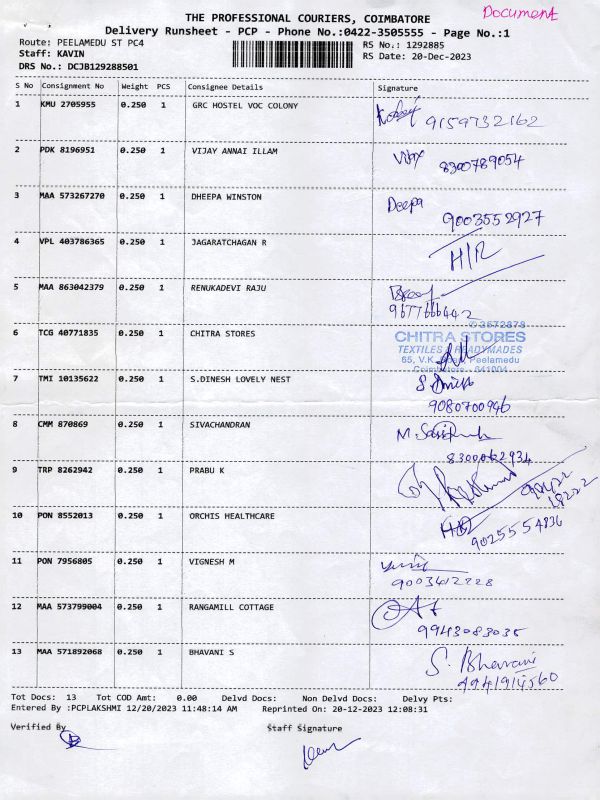 Document
THE PROFESSIONAL COURIERS, COIMBATORE
Delivery Runsheet - PCP - Phone No.:0422-3505555 - Page No.:1
Route: PEELAMEDU ST PC4 RS No.: 1292885
Staff: KAVIN RS Date: 20-Dec-2023
DRS No.: DCJB129288501
S No Consignment No Weight PCS Consignee Details Signature
1 KMU 2705955 0.250 1 GRC HOSTEL VOC COLONY
9159732162
2 PDK 8196951 0.250 1 VIJAY ANNAI ILLAM
8300789054
3 MAA 573267270 0.250 1 DHEEPA WINSTON Deepa
9003552927
4 VPL 403786365 0.250 1 JAGARATCHAGAN R H/R
5 MAA 863042379 0.250 1 RENUKADEVI RAJU
9677666442
6 TCG 40771835 0.250 1 CHITRA STORES CHITRA STORES
TEXTILES & READYMADES
65, V.K. Peelamedu
Coimbatore - 641004
7 TMI 10135622 0.250 1 S.DINESH LOVELY NEST
9080700946
8 CMM 870869 0.250 1 SIVACHANDRAN
8300062934
9 TRP 8262942 0.250 1 PRABU K
10 PON 8552013 0.250 1 ORCHIS HEALTHCARE
9025554836
11 PON 7956805 0.250 1 VIGNESH M
9003412228
12 MAA 573799004 0.250 1 RANGAMILL COTTAGE
9943083035
13 MAA 571892068 0.250 1 BHAVANI S S. Bhavani
9941914560
Tot Docs: 13 Tot COD Amt: 0.00 Delvd Docs: Non Delvd Docs: Delvy Pts:
Entered By :PCPLAKSHMI 12/20/2023 11:48:14 AM Reprinted On: 20-12-2023 12:08:31
Verified By Staff Signature